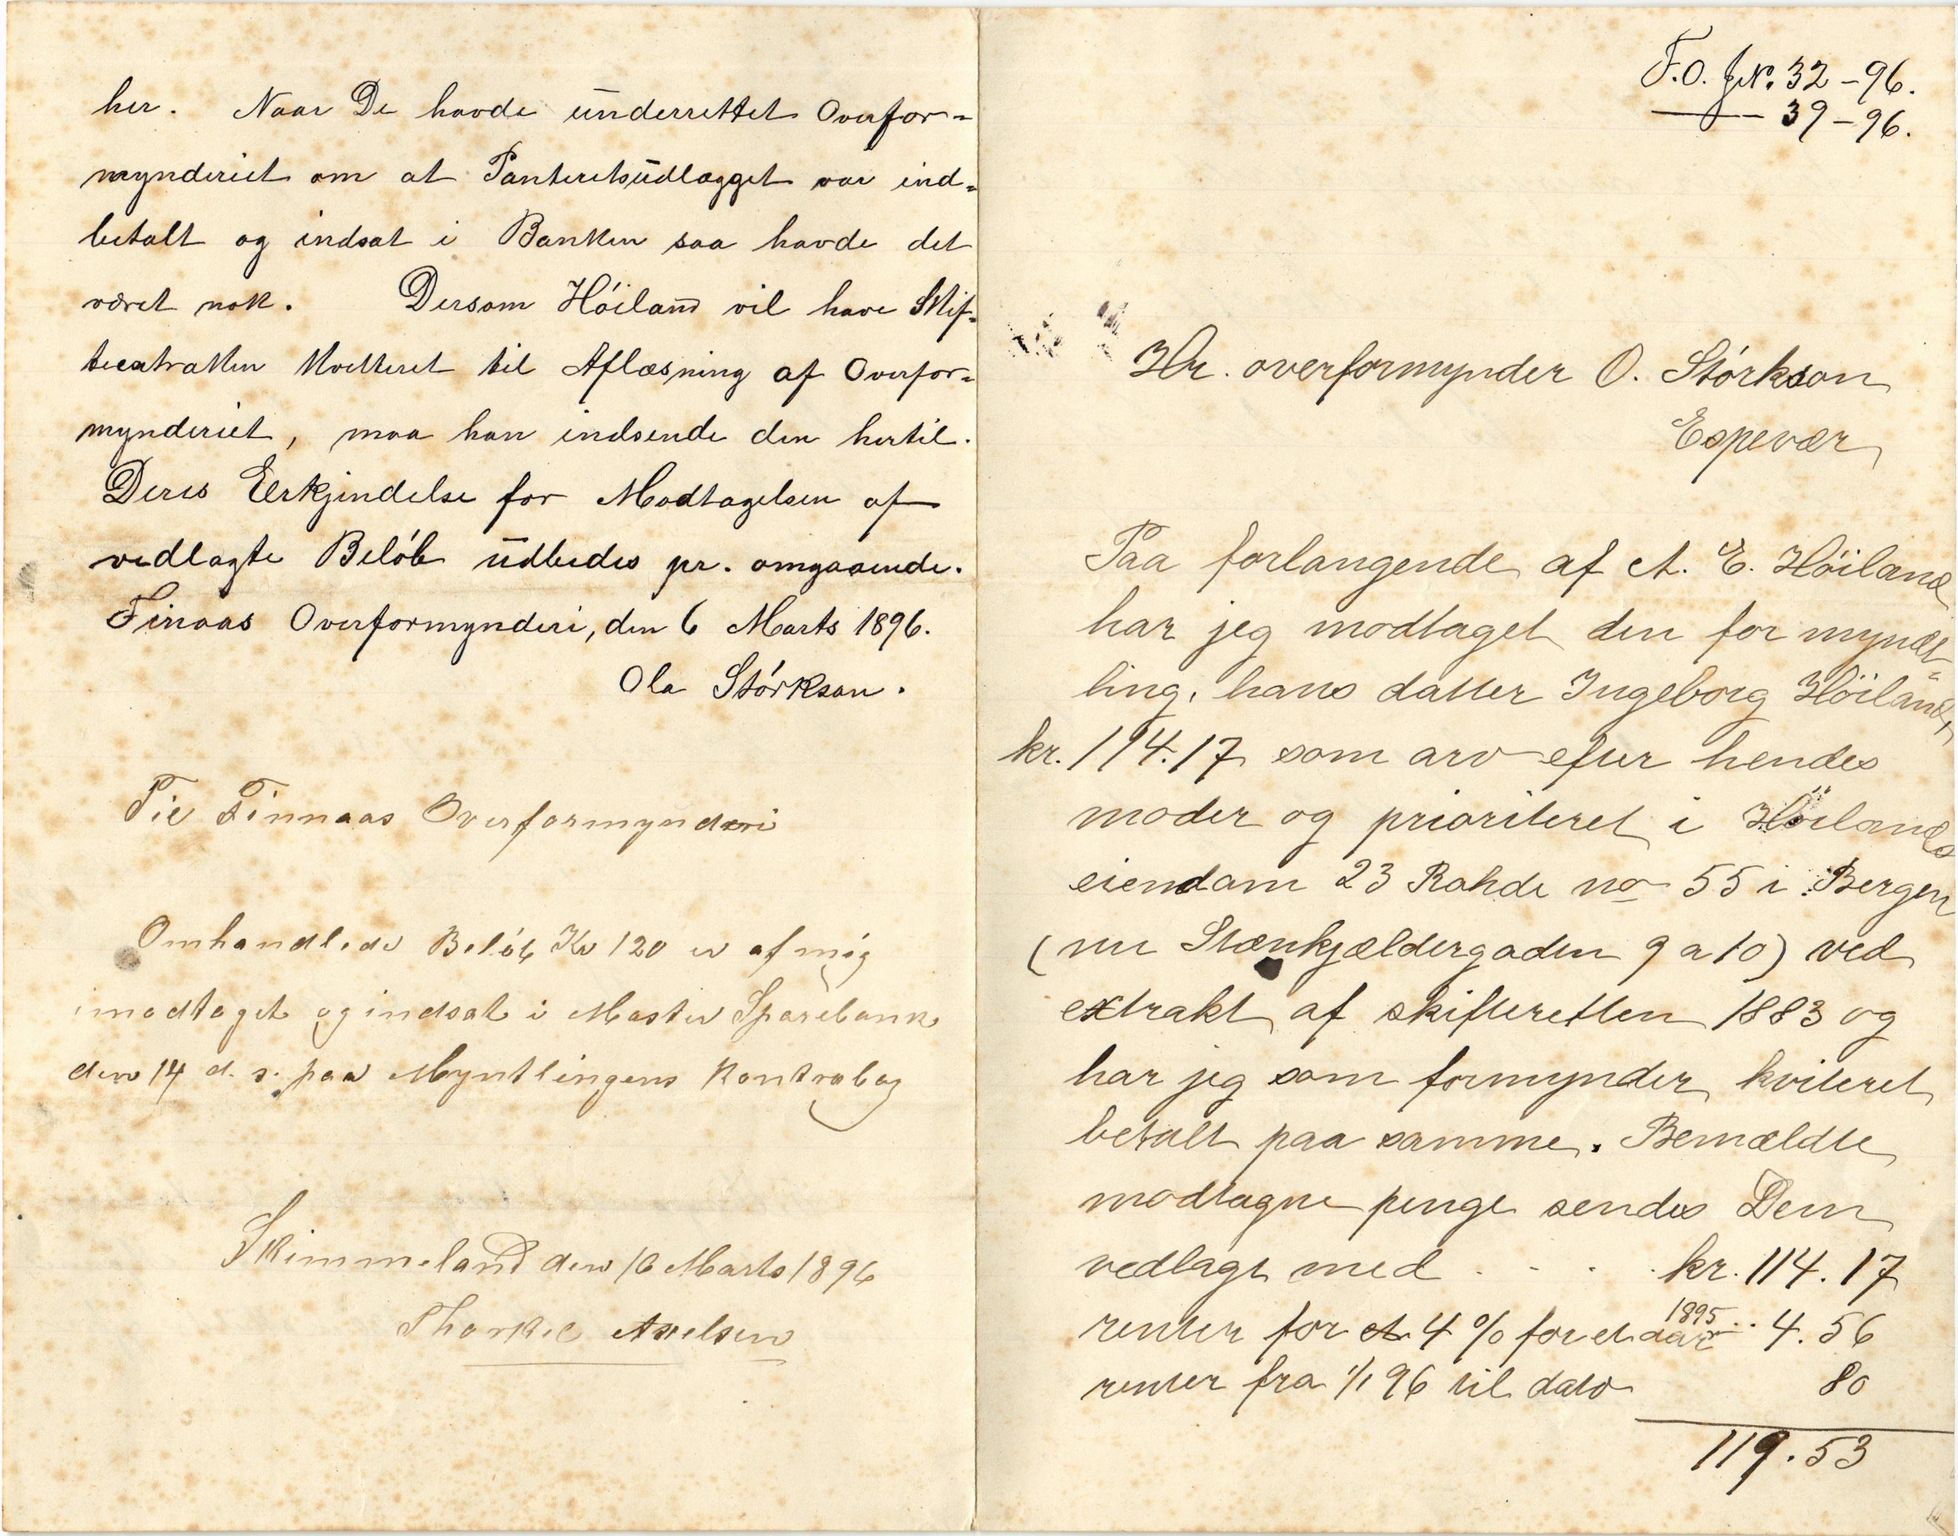 her. Naar De havde ūnderrettet Overfor-
mynderiet om at Panteretsūdlægget var ind-
betalt og indsat i Banken saa havde det
været nok. Dersom Höiland vil have Skif-
teextrakten kvitteret til Aflæsning af Overfor-
mynderiet, maa han indsende den hertil.
Deres Erkjendelse for Modtagelsen af
vedlagte Belöb ūdbedes pr. omgaaende.
Finaas Overformynderi, den 6 Marts 1896.
Ola Störkson.
Til Finnaas Overformynderi
Omhandlede Belöb Kr 120 er af mig
modtaget og indsat i Moster Sparebank
den 14 d. s. paa Myntlingens Kontrabog
Skimmeland den 16 Marts 1896
Thorkel Axelsen
F.O. JN. 32-96.
— 39-96.
Hr. overformynder O. Störkson
Espevær
Paa forlangende af A. E. Höiland
har jeg modtaget den for mynd-
ling, hans datter Ingeborg Höiland,
kr. 114.17 som arv efter hendes
moder og prioriteret i Höilands
eiendom 23 Rohde no 55 i Bergen
(nu Stenkjældergaden 9 a 10) ved
extrakt af skifteretten 1883 og
har jeg som formynder kviteret
betalt paa samme. Bemældte
modtagne penge sendes Dem
vedlagt med . . . . kr. 114.17
renter for et 4 % for et aar 1895 .. 4.56
renter fra 1/1 96 til dato 80
119.53